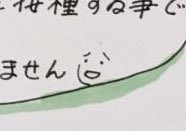 接種する事で
ません